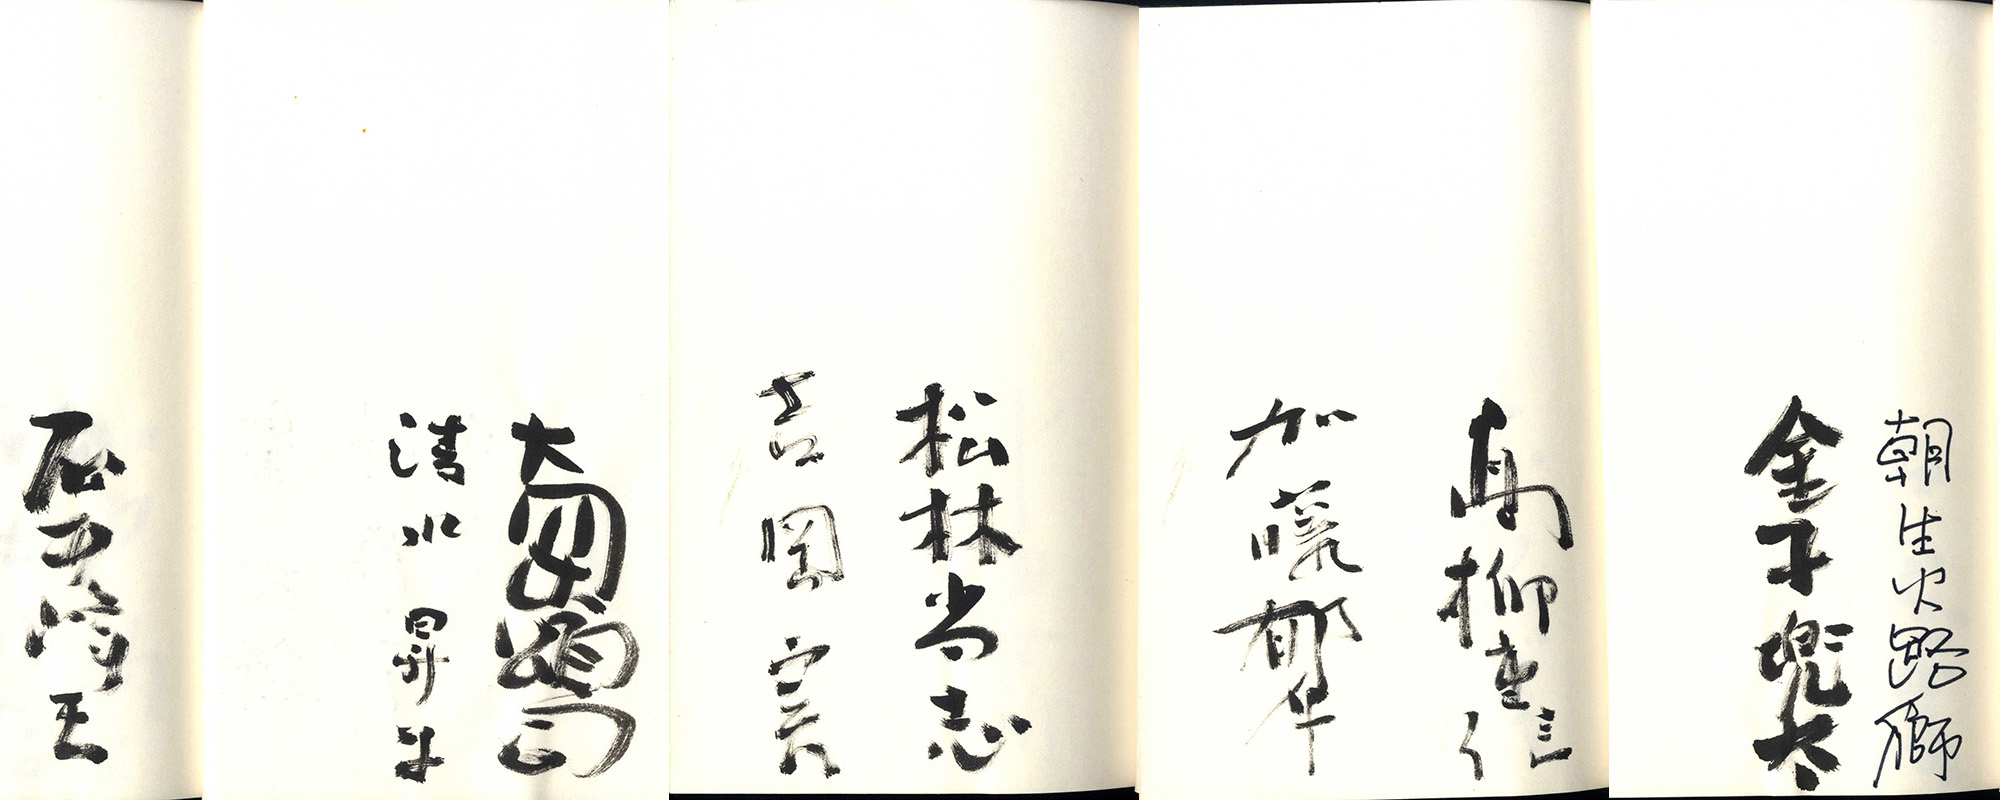 朝生火路獅
金子兜太
高柳重信
加藤郁乎
松林尚志
吉岡實
大岡頌司
清水昇子